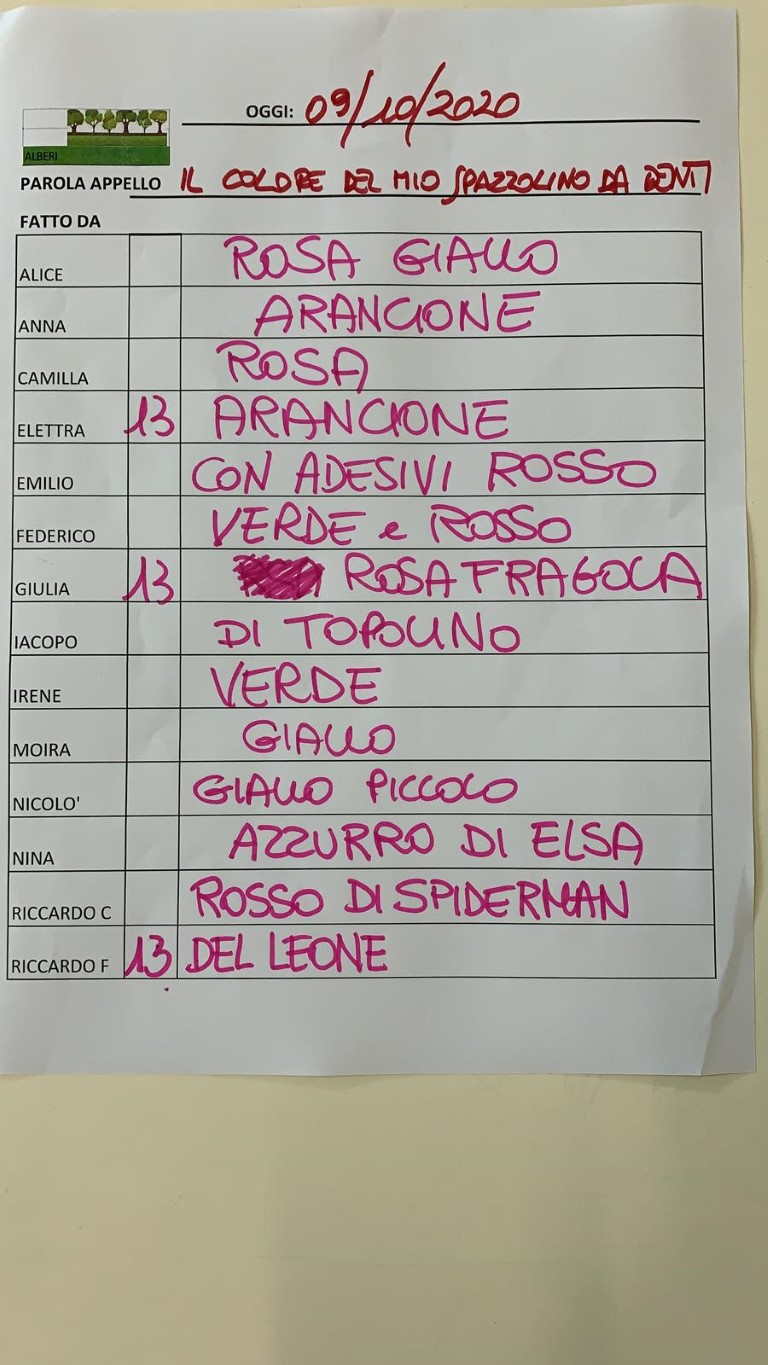 OGGI: 09/10/2020
ALBERI
PAROLA APPELLO IL COLORE DEL MIO SPAZZOLINO DA DENTI
FATTO DA
ALICE ROSA GIALLO
ANNA ARANCIONE
CAMILLA ROSA
ELETTRA 13 ARANCIONE
EMILIO CON ADESIVI ROSSO
FEDERICO VERDE e ROSSO
GIULIA 13 ROSA FRAGOLA
IACOPO DI TOPOLINO
IRENE VERDE
MOIRA GIALLO
NICOLO' GIALLO PICCOLO
NINA AZZURRO DI ELSA
RICCARDO C ROSSO DI SPIDERMAN
RICCARDO F 13 DEL LEONE